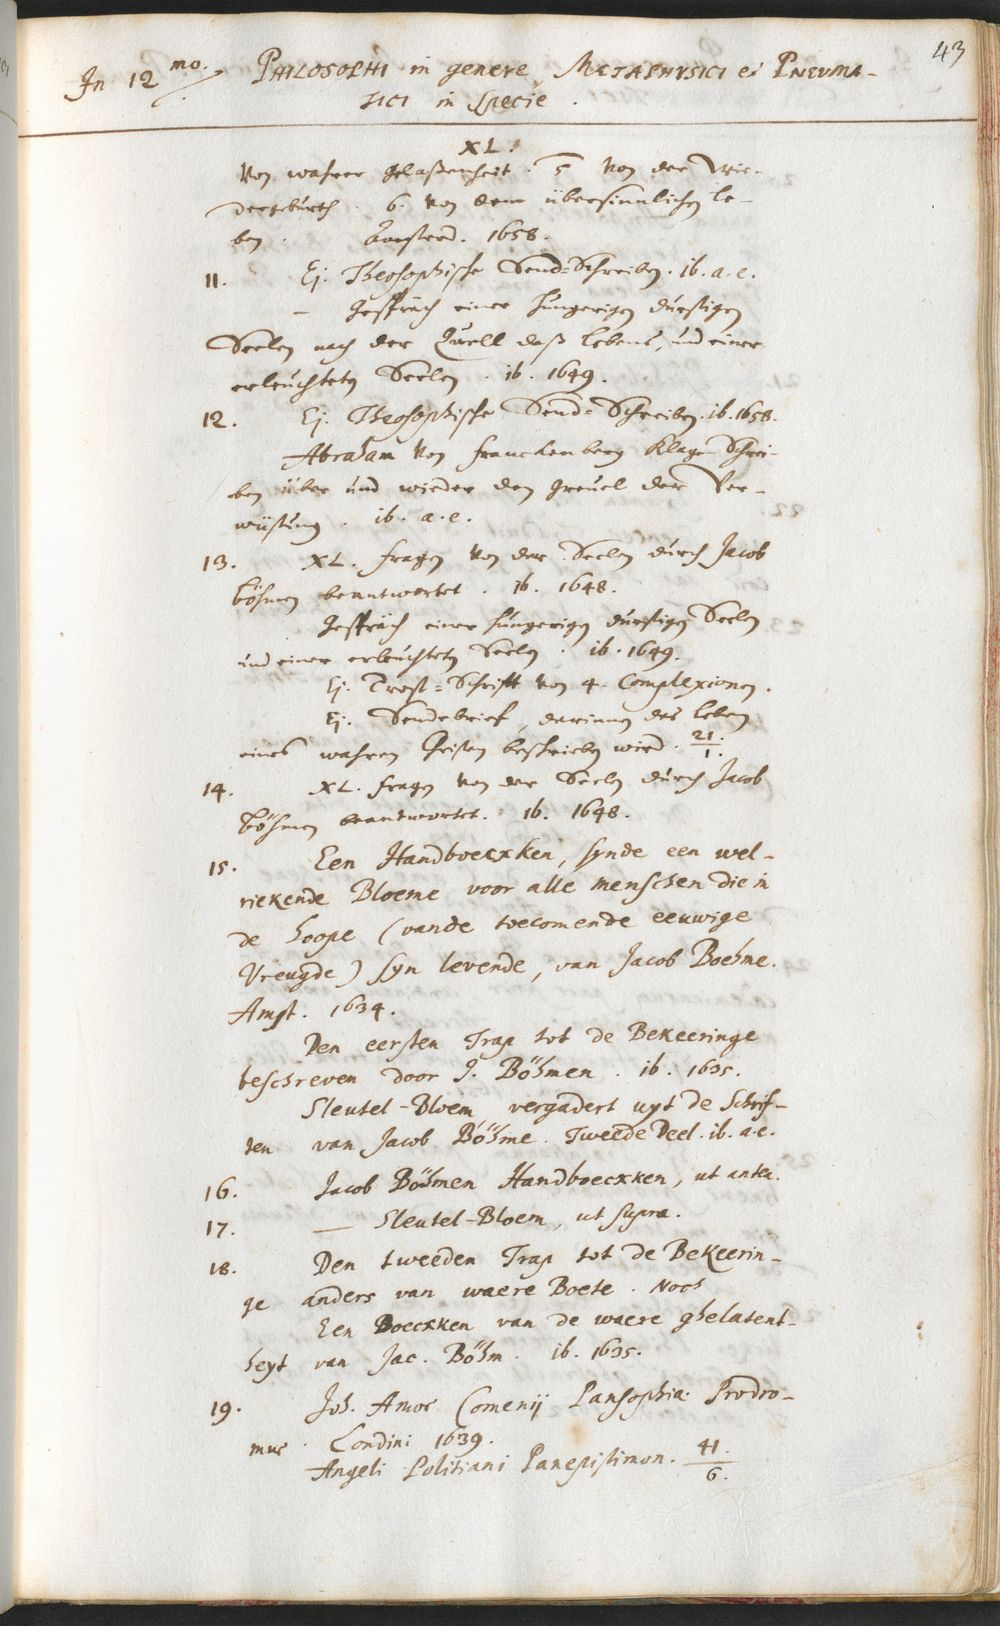 43
In 12mo. PHILOSOPHI in genere, METAPHYSICI et PNEUMA-
TICI in specie.
XL.
Von wahrer gelaßenheit. 5 Von der Wie-
dergeburth. 6. Von dem übersinnlichen le-
ben. Amsterd. 1658.
11. Ej. Theosophische Send-Schreiben. ib. a. e.
– Gespräch einer hungerigen durstigen
Seelen nach der Quell deß lebens, und einer
erleuchteten Seelen. ib. 1649.
12. Ej. Theosophische Send-Schreiben. ib. 1658.
Abraham Von Franckenberg Klage-Schrei-
ben über und wieder den Greuel der Ver-
wüstung. ib. a. e.
13. XL. fragen Von der Seelen durch Jacob
Böhmen beantwortet. ib. 1648.
Gespräch einer hungerigen durstigen Seelen
und einer erleuchteten Seelen. ib. 1649.
Ej. Trost-Schrifft Von 4. Complexionen.
Ej. Sendebrief, darinnen das leben
eines wahren Christen beschrieben wird. 21./1.
14. XL. fragen Von der Seelen durch Jacob
Böhmen beantwortet. ib. 1648.
15. Een Handboecxken, synde een wel-
riekende Bloeme voor alle menschen die in
de hoope (vande toecomende eeuwige
Vreugde) syn levende, van Jacob Boehme.
Amst. 1634.
Den eersten Trap tot de Bekeeringe
beschreven door J. Böhmen. ib. 1635.
Sleutel-Bloem vergadert uyt de Schrif-
ten van Jacob Böhme. Tweede Deel. ib. a. e.
16. Jacob Böhmen Handboecxken, ut antea.
17. — Sleutel-Bloem, ut supra.
18. Den tweeden Trap tot de Bekeerin-
ge anders van waere Boete. Noch
Een Boecxken van de waere ghelatent-
heyt van Jac. Böhm. ib. 1635.
19. Joh. Amos Comenij Pansophiae Prodro-
mus. Londini 1639.
Angeli Politiani Panepistimon. 41./6.